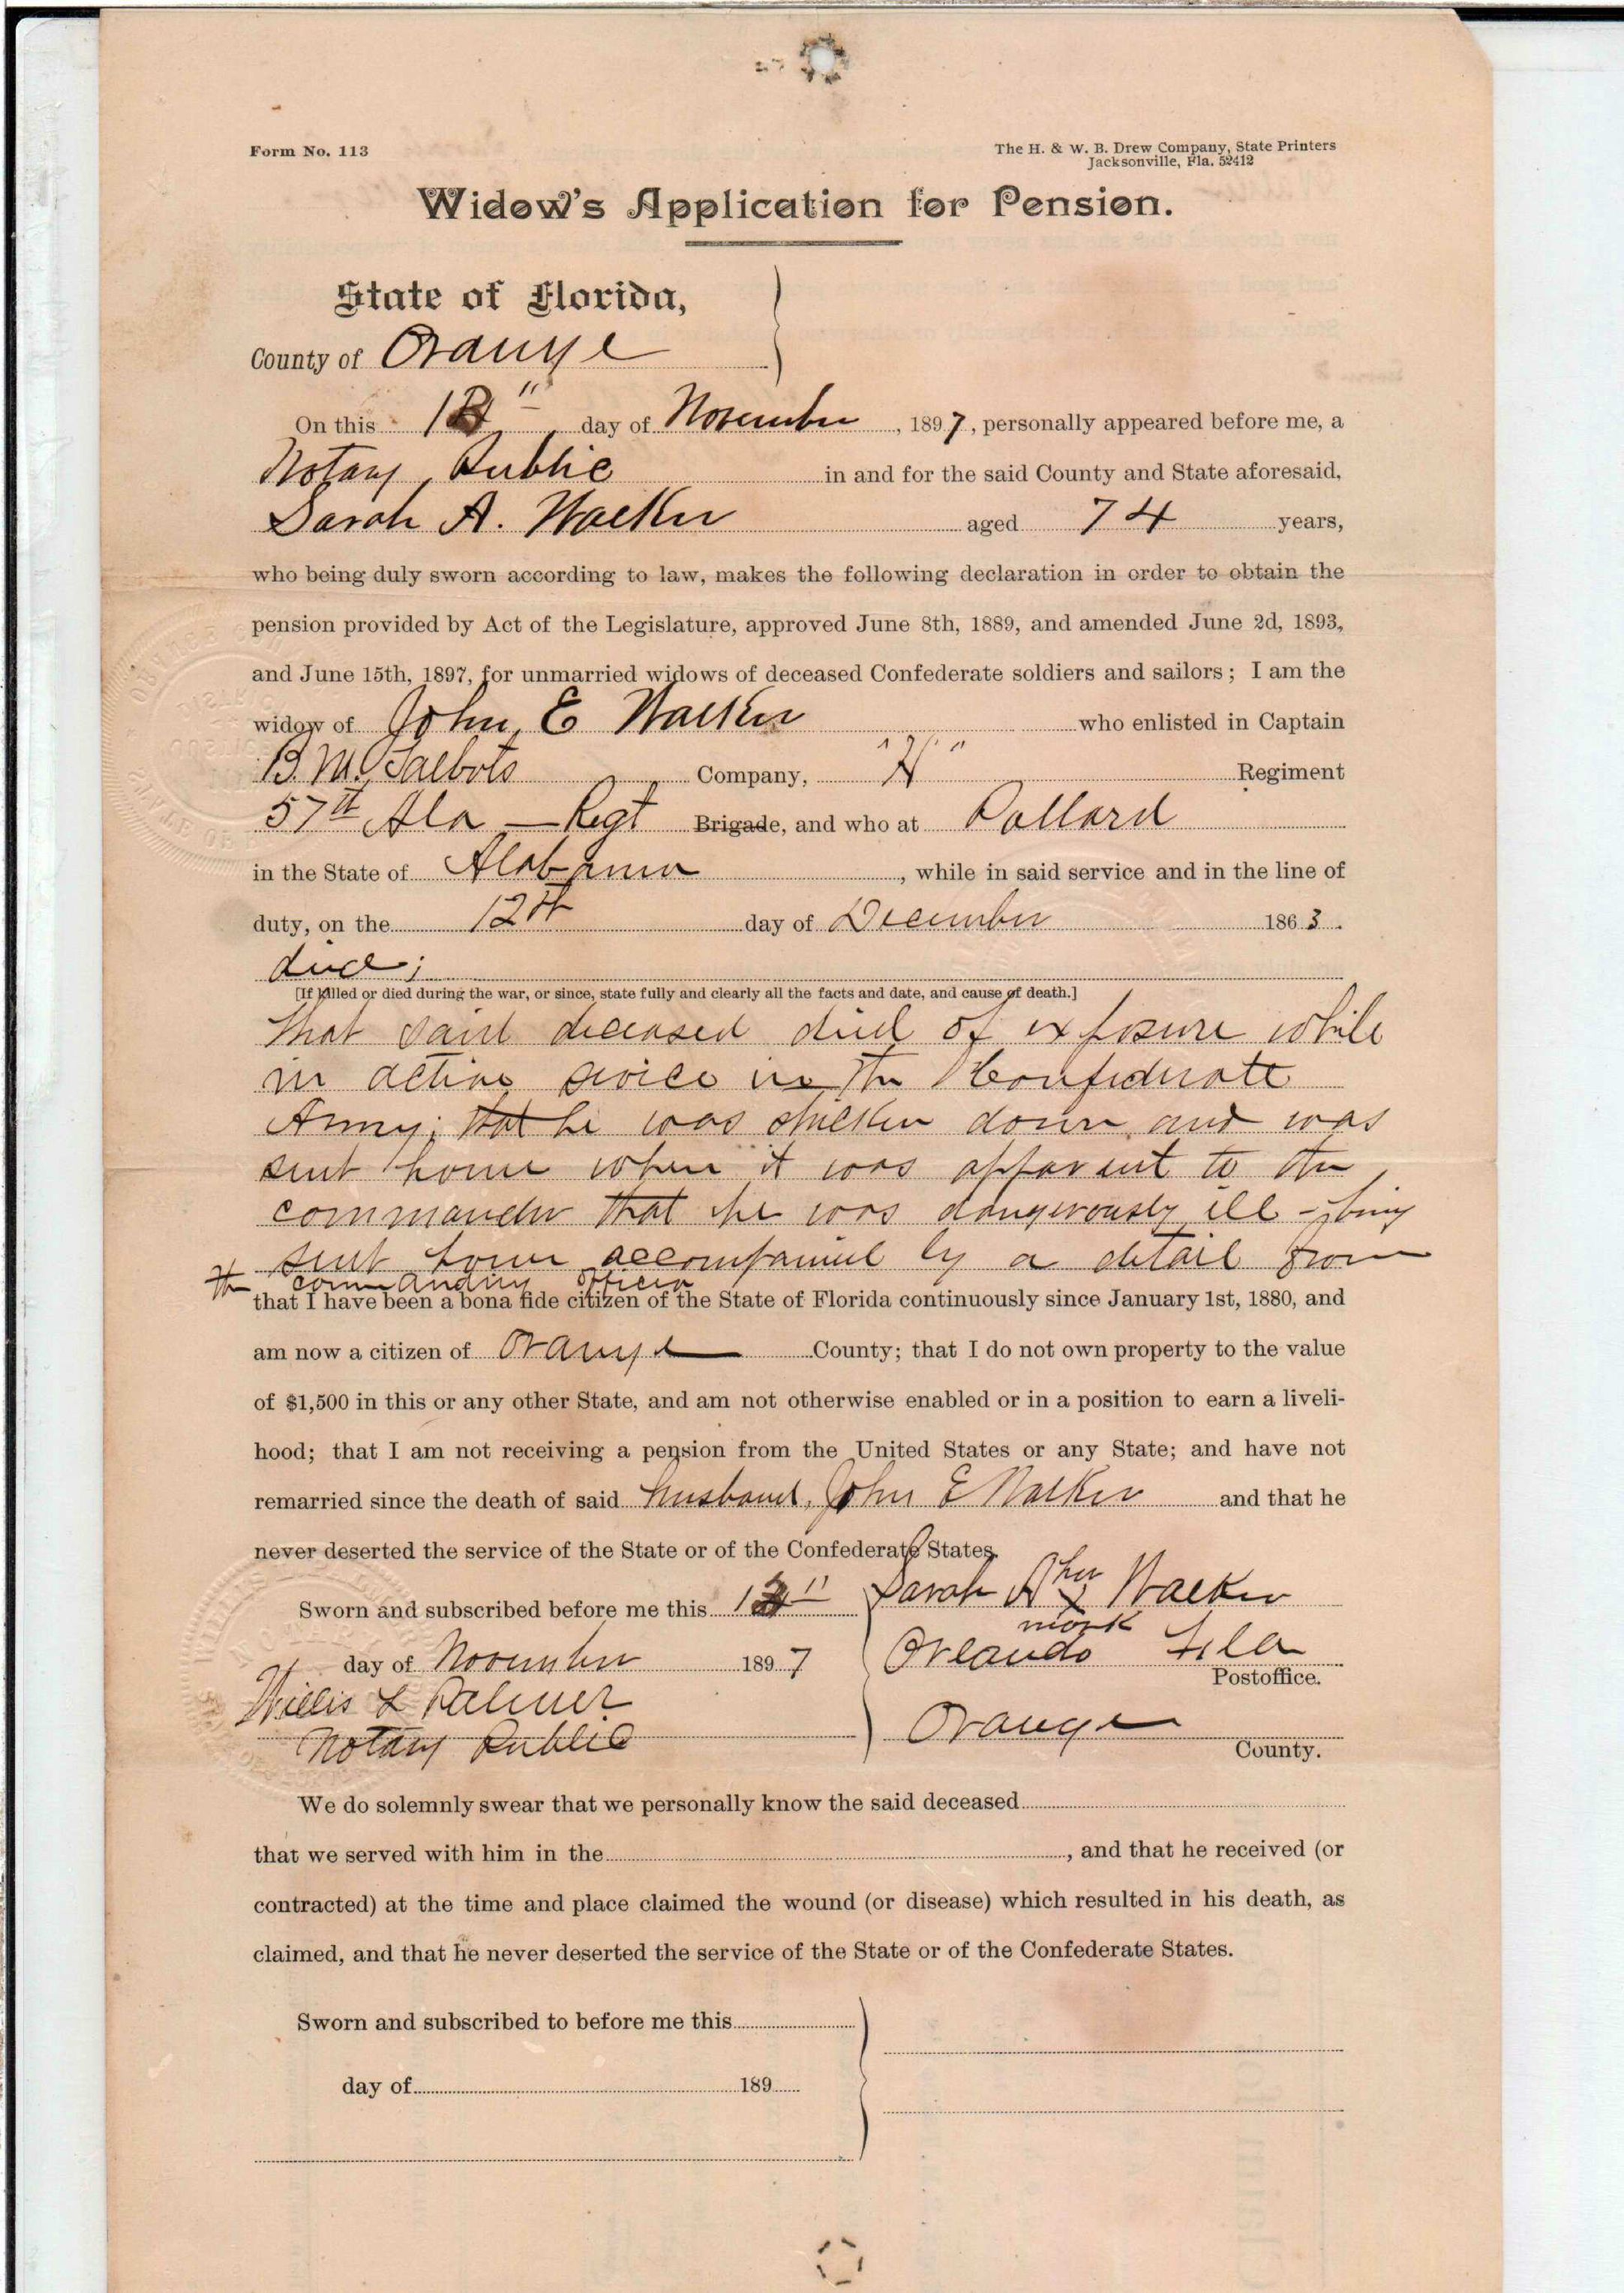 Form No. 113
The H. & W. B. Drew Company, State Printers
Jacksonville, Fla. 52412
Widow's Application for Pension.
State of Florida,
County of Orange
On this day of November, 1897, personally appeared before me, a
Notary Public in and for the said County and State aforesaid,
Sarah A. Walker aged 74 years,
who being duly sworn according to law, makes the following declaration in order to obtain the
pension provided by Act of the Legislature, approved June 8th, 1889, and amended June 2d, 1893,
and June 15th, 1897, for unmarried widows of deceased Confederate soldiers and sailors; I am the
widow of John E Walker who enlisted in Captain
B. M. Talbots Company, "H" Regiment
57th Ala — Regt Brigade, and who at Pollard
in the State of Alabama, while in said service and in the line of
duty, on the 12th day of December 1863.
died;
[If killed or died during the war, or since, state fully and clearly all the facts and date, and cause of death.]
that said deceased died of exposure while
in active service in the Confederate
Army; that he was stricken down and was
sent home when it was apparent to the
commander that he was dangerously ill - being
sent home accompanied by a detail from
the commanding officer
that I have been a bona fide citizen of the State of Florida continuously since January 1st, 1880, and
am now a citizen of Orange County; that I do not own property to the value
of $1,500 in this or any other State, and am not otherwise enabled or in a position to earn a liveli-
hood; that I am not receiving a pension from the United States or any State; and have not
remarried since the death of said husband, John E Walker and that he
never deserted the service of the State or of the Confederate States.
Sworn and subscribed before me this
Sarah A her x Walker
mark
day of November 1897
Orlando Fla
Postoffice.
Willis L Palmer
Notary Public
Orange
County.
We do solemnly swear that we personally know the said deceased
that we served with him in the, and that he received (or
contracted) at the time and place claimed the wound (or disease) which resulted in his death, as
claimed, and that he never deserted the service of the State or of the Confederate States.
Sworn and subscribed to before me this
day of 189